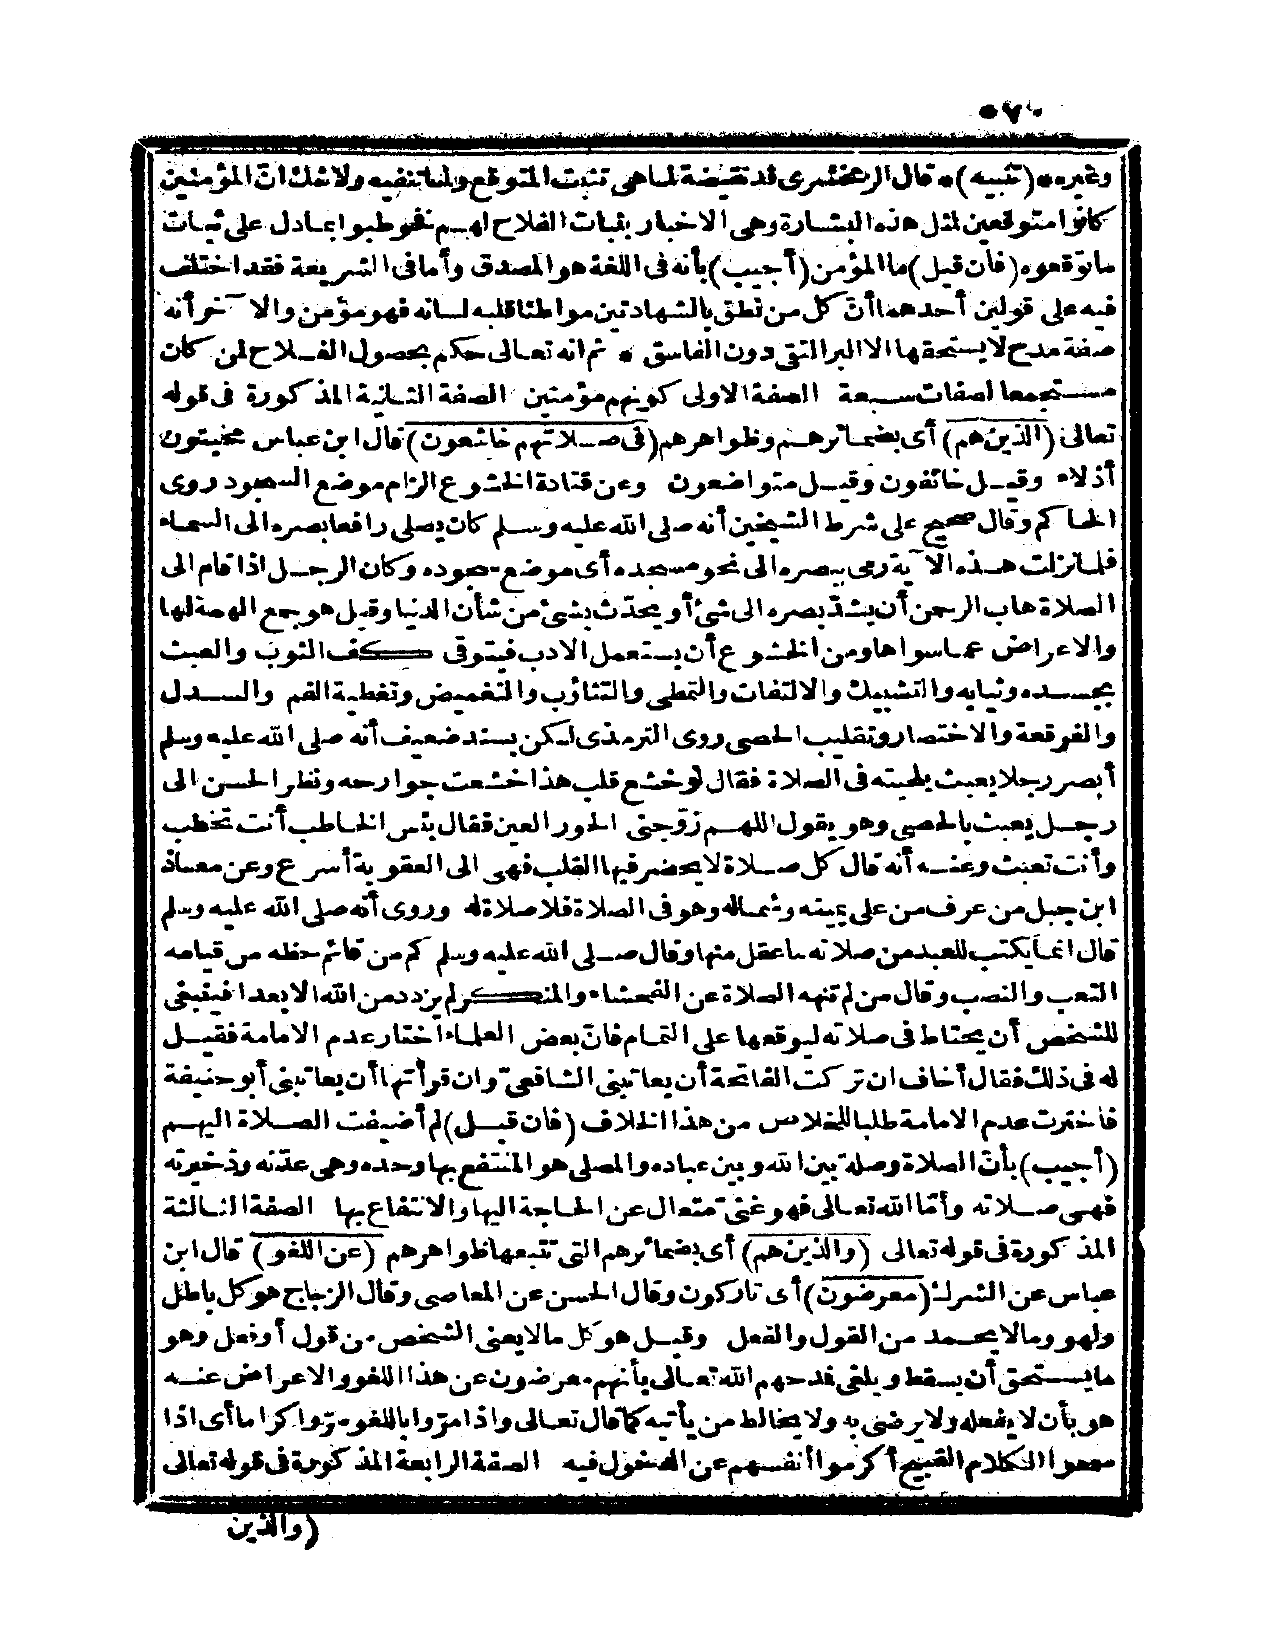 ٥٧٠
وغيره * (تنبيه) * قال الزمخشرى قد نقيضة لما هى تثبت المتوقع ولما تنفيه ولا شك أنّ المؤمنين
كانوا متوقعين لمثل هذه البشارة وهى الاخبار بثبات الفلاح لهم فخوطبوا بما دل على ثبات
ما توقعوه (فان قيل) ما المؤمن (أجيب) بأنه فى اللغة هو المصدق وأما فى الشريعة فقد اختلف
فيه على قولين أحدهما أن كل من نطق بالشهادتين مواطئا قلبه لسانه فهو مؤمن والا خر أنه
صفة مدح لا يستحقها الا البر التقى دون الفاسق * ثم انه تعالى حكم بحصول الفلاح لمن كان
مستجمعا لصفات سبعة الصفة الاولى كونهم مؤمنين الصفة الثانية المذكورة فى قوله
تعالى (الذين هم) أى بضمائرهم وظواهرهم (فى صلاتهم خاشعون) قال ابن عباس مخبتون
أذلاء وقيل خائفون وقيل متواضعون وعن قتادة الخشوع الزام موضع السجود روى
الحاكم وقال صحيح على شرط الشيخين أنه صلى الله عليه وسلم كان يصلى رافعا بصره الى السماء
فلما نزلت هذه الآية رمى ببصره الى نحو مسجده أى موضع سجوده وكان الرجل اذا قام الى
الصلاة هاب الرحمن أن يشذ بصره الى شئ أو يحدّث بشئ من شأن الدنيا وقيل هو جمع الهمة لها
والاعراض عما سواها ومن الخشوع أن يستعمل الادب فيتوقى كف الثوب والعبث
بجسده وثيابه والتشبيك والالتفات والتمطى والتثاؤب والتغميض وتغطية الفم والسدل
والفرقعة والاختصار وتقليب الحصى روى الترمذى لكن بسند ضعيف أنه صلى الله عليه وسلم
أبصر رجلا يعبث بلحيته فى الصلاة فقال لو خشع قلب هذا خشعت جوارحه ونظر الحسن الى
رجل يعبث بالحصى وهو يقول اللهم زوّجنى الحور العين فقال بئس الخاطب أنت تخطب
وأنت تعبث وعنه أنه قال كل صلاة لا يحضر فيها القلب فهى الى العقوبة أسرع وعن معاذ
ابن جبل من عرف من على يمينه وشماله وهو فى الصلاة فلا صلاة له وروى أنه صلى الله عليه وسلم
قال انما يكتب للعبد من صلاته ما عقل منها وقال صلى الله عليه وسلم كم من قائم حظه من قيامه
التعب والنصب وقال من لم تنهه الصلاة عن الفحشاء والمنكر لم يزدد من الله الا بعدا فينبغى
للشخص أن يحتاط فى صلاته ليوقعها على التمام فان بعض العلماء اختار عدم الامامة فقيل
له فى ذلك فقال أخاف ان تركت الفاتحة أن يعاتبنى الشافعىّ وان قرأتها أن يعاتبنى أبو حنيفة
فاخترت عدم الامامة طلبا للخلاص من هذا الخلاف (فان قيل) لم أضيفت الصلاة اليهم
(أجيب) بأن الصلاة وصلة بين الله وبين عباده والمصلى هو المنتفع بها وحده وهى عدّته وذخيرته
فهى صلاته وأمّا الله تعالى فهو غنىّ متعال عن الحاجة اليها والانتفاع بها الصفة الثالثة
المذكورة فى قوله تعالى (والذين هم) أى بضمائرهم التى تتبعها ظواهرهم (عن اللغو) قال ابن
عباس عن الشرك (معرضون) أى تاركون وقال الحسن عن المعاصى وقال الزجاج هو كل باطل
ولهو وما لا يحمد من القول والفعل وقيل هو كل ما لا يعنى الشخص من قول أو فعل وهو
ما يستحق أن يسقط ويلغى فمدحهم الله تعالى بأنهم معرضون عن هذا اللغو والاعراض عنه
هو بأن لا يفعله ولا يرضى به ولا يخالط من يأتيه كما قال تعالى واذا مرّوا باللغو مرّوا كراما أى اذا
سمعوا الكلام القبيح أكرموا أنفسهم عن الدخول فيه الصفة الرابعة المذكورة فى قوله تعالى
(والذين